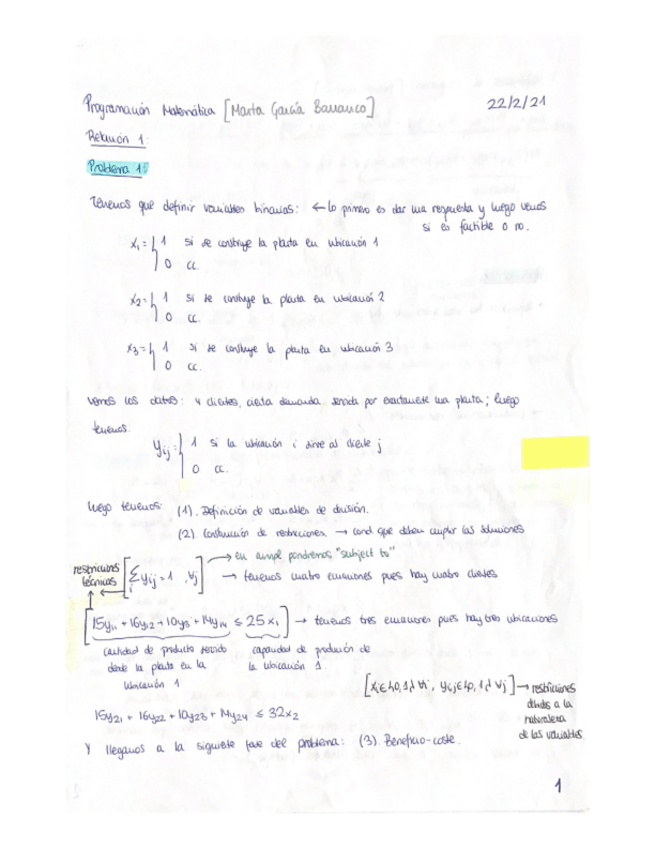 Programación Matemática [Marta García Barranco] 22/2/21
Relación 1:
Problema 1:
Tenemos que definir variables binarias: ← lo primero es dar una respuesta y luego vemos
si es factible o no.
x₁ = { 1 si se construye la planta en ubicación 1
0 cc.
x₂ = { 1 si se construye la planta en ubicación 2
0 cc.
x₃ = { 1 si se construye la planta en ubicación 3
0 cc.
Vemos los datos: 4 clientes, cierta demanda servida por exactamente una planta; luego
tenemos:
yᵢⱼ = { 1 si la ubicación i sirve al cliente j
0 cc.
luego tenemos: (1). Definición de variables de decisión.
(2). Construcción de restricciones → cond. que deben cumplir las soluciones
→ en ampl pondremos "subject to"
restricciones técnicas [Σᵢ yᵢⱼ = 1, ∀j] → tenemos cuatro ecuaciones pues hay cuatro clientes
[15y₁₁ + 16y₁₂ + 10y₁₃ + 14y₁₄ ≤ 25x₁] → tenemos tres ecuaciones pues hay tres ubicaciones
cantidad de producto servido desde la planta en la ubicación 1
capacidad de producción de la ubicación 1.
[xᵢ∈{0,1} ∀i, yᵢⱼ∈{0,1} ∀j] → restricciones debidas a la naturaleza de las variables
15y₂₁ + 16y₂₂ + 10y₂₃ + 14y₂₄ ≤ 32x₂
Y llegamos a la siguiente fase del problema: (3). Beneficio-coste.
1